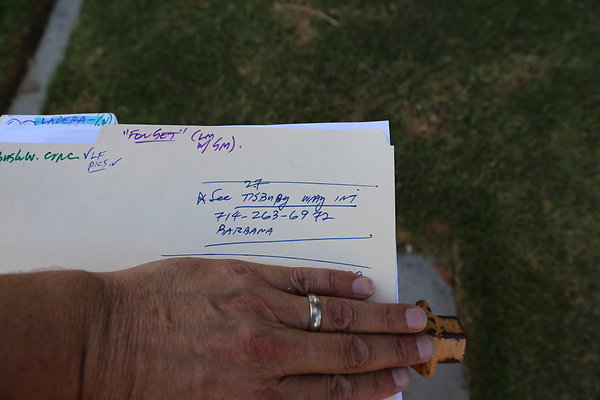 LADERA-(N)
"FONSET" (LM
W/SM).
CYN. ✓LF
PICS. ✓
27
* See TISBURY WAY INT
714-263-6972
BARBANA